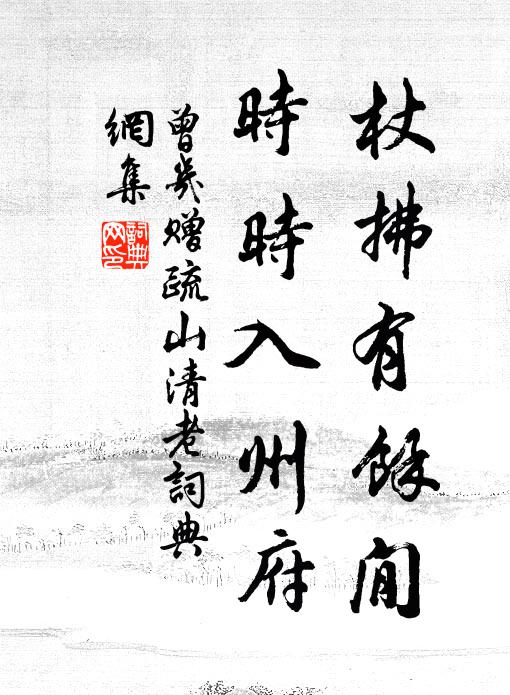 杖拂有餘閒
時時入州府
曾幾贈疏山清老詞典
網集
詞典網印